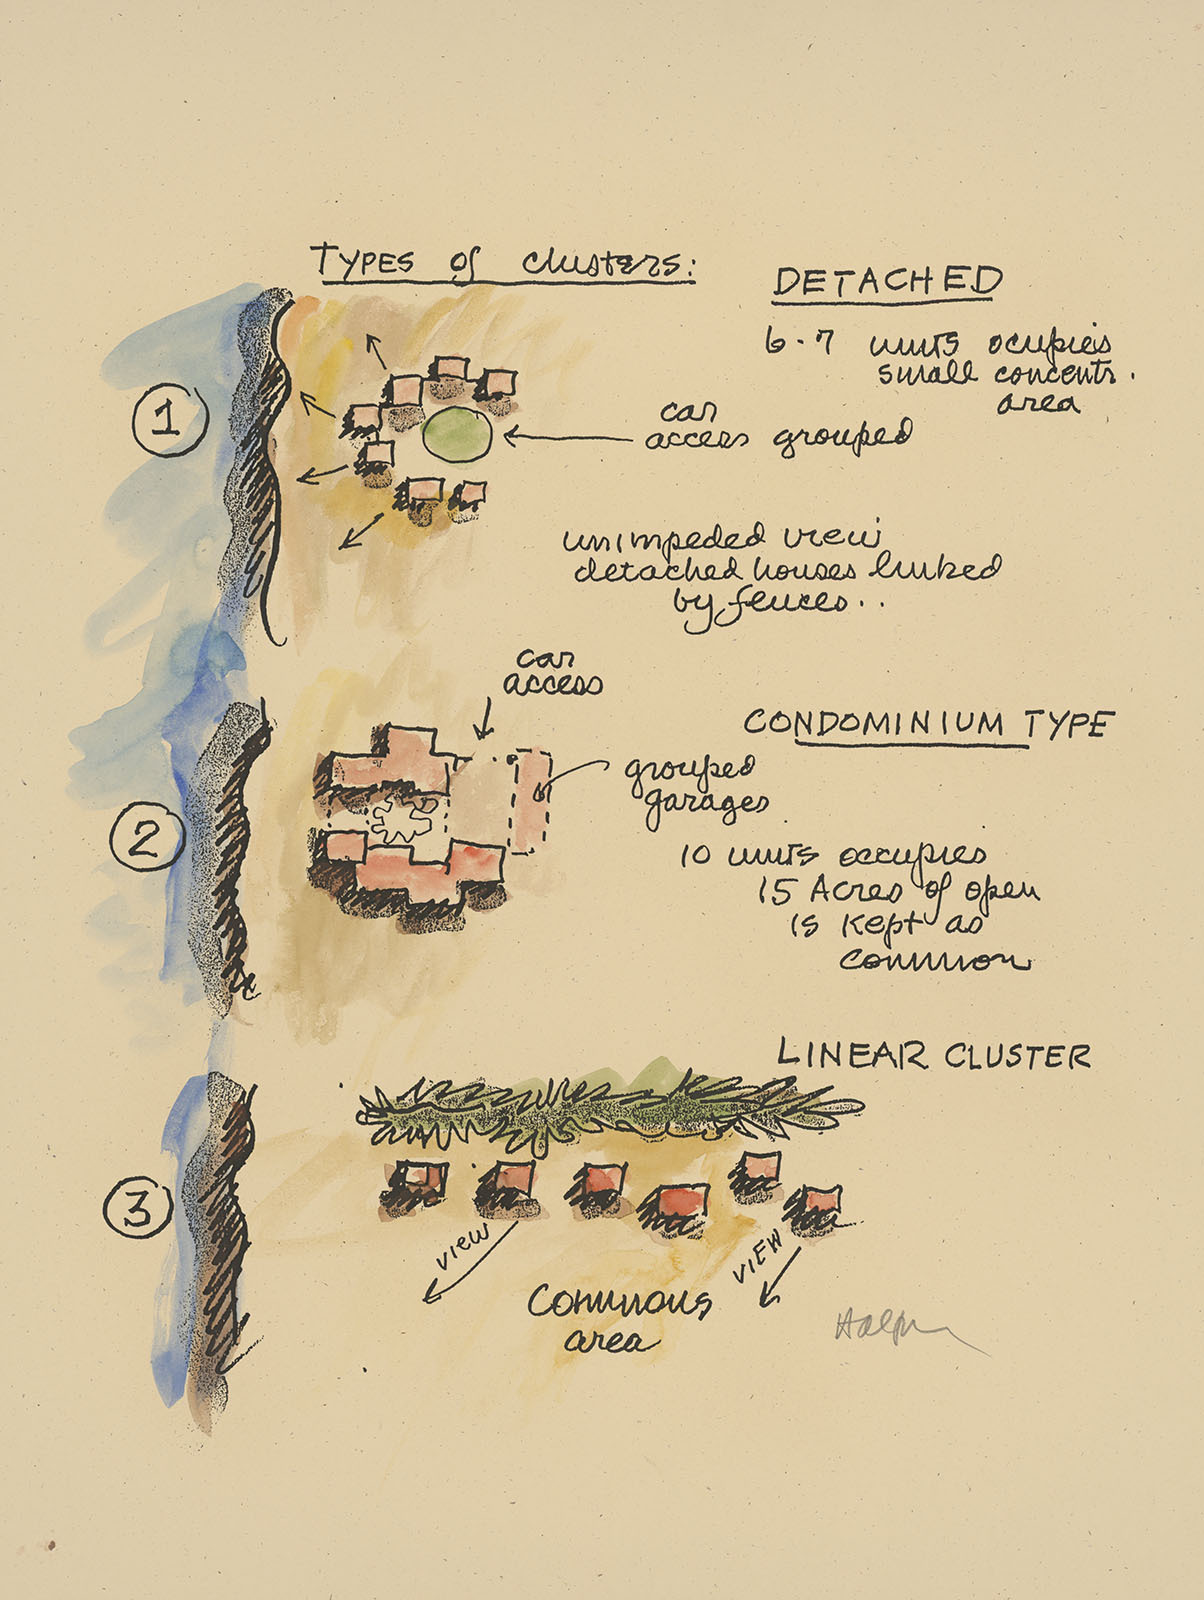 TYPES of clusters:
DETACHED
6-7 units ocupies
small concentr.
area
1
car
access grouped
unimpeded view
detached houses linked
by fences..
car
access
CONDOMINIUM TYPE
grouped
garages
2
10 units occupies
15 Acres of open
is kept as
common
LINEAR CLUSTER
3
view
VIEW
Commons
area